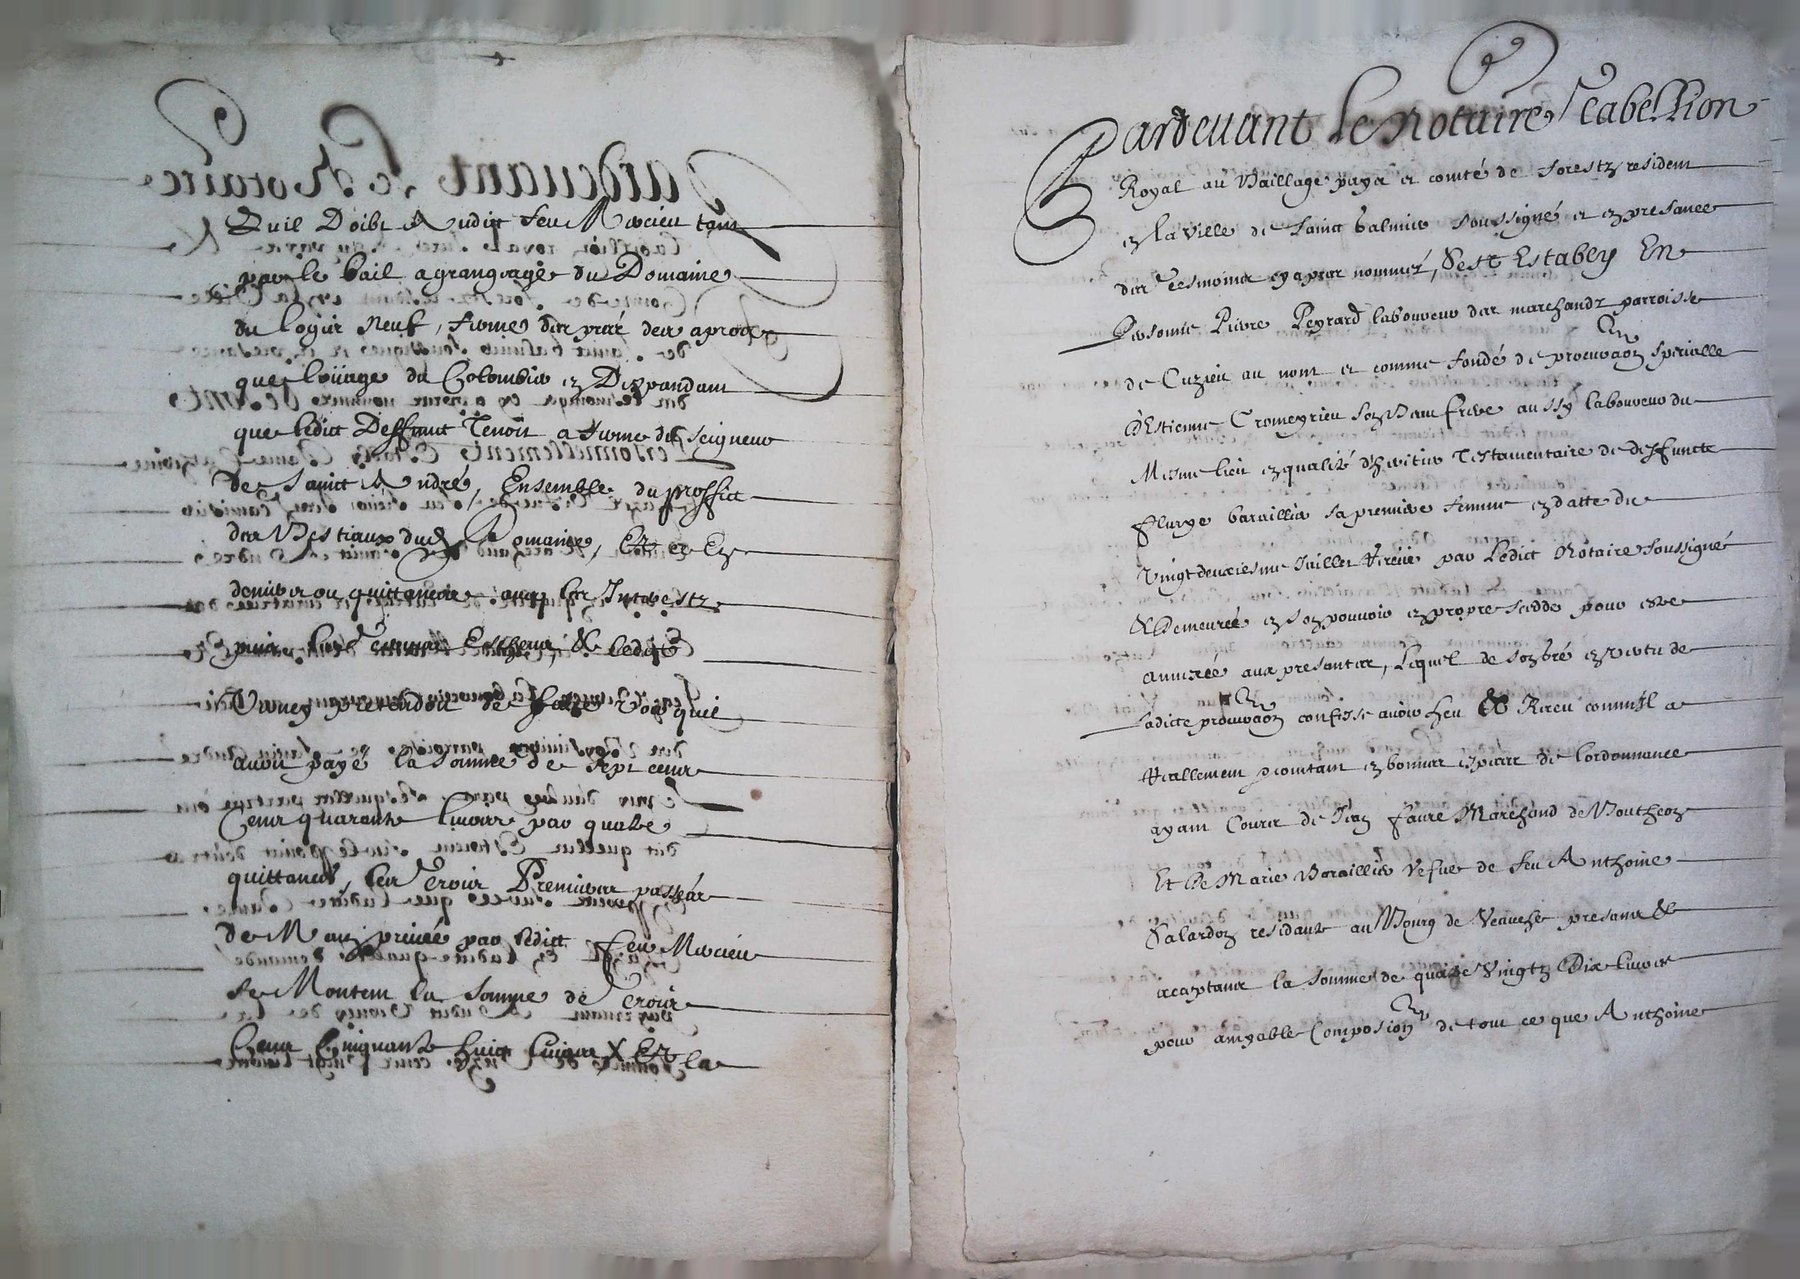 Quil Doibt Audict feu Marcieu tant
par le bail a grangeage du Domaine
du logis Neuf, ferme des prés des
que louage du Colombier en Deppandant
que ledict Deffunct Tenoit a ferme du seigneur
De Sainct André, Ensemble du proffict
des Bestiaux dud. Domaine, Et en
deniers ou quittances avec les Interestz
puis les Termes Escheus, & ledict
Verney pretendoit de faire Voir quil
avoir payé la somme de sept cens
Cens quarante livres par quatre
quittances, les Trois Premieres passées
De Main privée par ledict feu Marcieu
se Montent la somme de Trois
Cens Cinquante huict livres X Et la
Pardevant le Notaire Tabellion
Royal au Baillage pays et comté de forestz resident
en la ville de Sainct Galmier soussigné et en presance
des Tesmoins cy apres nommez, Sest Estably En
Personne Pierre Peyrard laboureur des marchandz parroisse
de Cuzieu au nom et comme fondé de procuraon specialle
dEstienne Cromeyrieu son Beau frere aussy laboureur du
Mesme lieu en qualité d'heritier Testamentaire de deffuncte
fleurye baraillier sa premiere femme en datte du
Vingt deuxiesme Juillet Receue par Ledict Notaire soussigné
& Demeurée en son pouvoir en propre sedde pour estre
annexée aux presantes, Lequel de son gré en vertu de
Ladicte procuraon confesse avoir heu & Receu comme Il a
Reallement comtant en bonnes especes de lordonnance
ayant Cours de Jean faure Marchand de Montheon
Et De Marie Baraillier Vefue de feu Anthoine
Valardon residante au Bourg de Veauche presans &
acceptans la somme de quatre Vingtz Dix livres
pour amyable Composion de tout ce que Anthoine